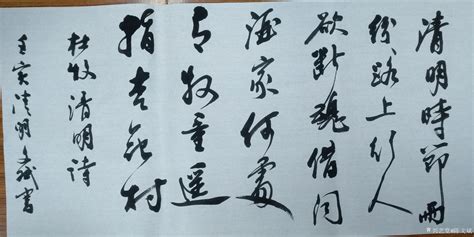 清明時節雨
紛々路上行人
欲斷魂借问
酒家何處
有牧童遥
指杏花村
杜牧清明诗
壬寅清明書